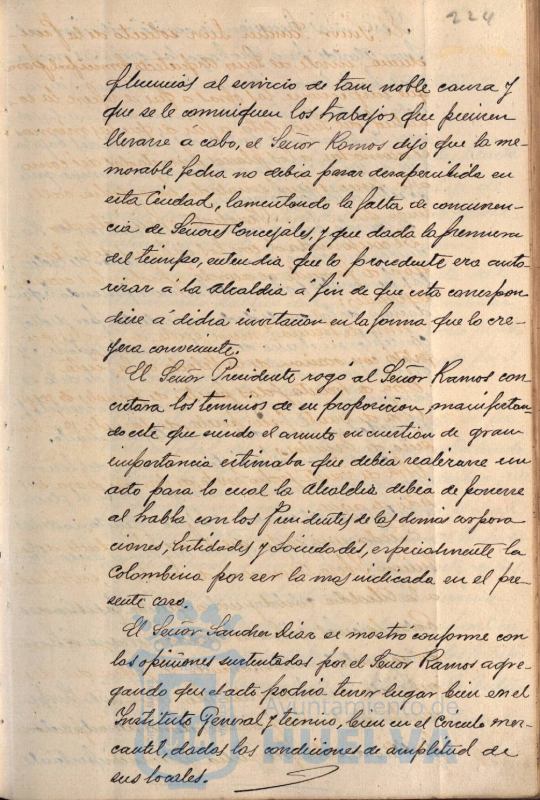 224
fluencias al servicio de tan noble causa y
que se le comuniquen los trabajos que piensen
llevarse a cabo, el Señor Ramos dijo que la me-
morable fecha no debia pasar desapercibida en
esta Ciudad, lamentando la falta de concurren-
cia de Señores Concejales, y que dada la premura
del tiempo, entendia que lo procedente era auto
rizar á la Alcaldia á fin de que esta correspon
diese á dicha invitacion en la forma que lo cre-
yera conveniente.
El Señor Presidente rogó al Señor Ramos con
cretara los terminos de su proposicion, manifestan
do este que siendo el asunto en cuestion de gran
importancia estimaba que debia realizarse un
acto para lo cual la Alcaldia debia de ponerse
al habla con los Presidentes de las demas corpora
ciones, Entidades y Sociedades, especialmente la
Colombina por ser la mas indicada en el pre-
sente caso.
El Señor Sanchez Diaz se mostró conforme con
las opiniones sustentadas por el Señor Ramos agre-
gando que el acto podria tener lugar bien en el
Instituto General y tecnico, bien en el Circulo mer-
cantil, dadas las condiciones de amplitud de
sus locales.
Ayuntamiento de
HUELVA